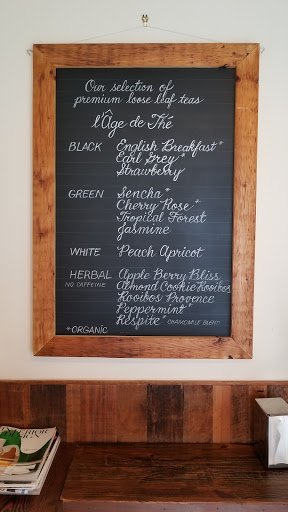 Our selection of
premium loose leaf teas
l'Âge de Thé
BLACK English Breakfast*
Earl Grey*
Strawberry
GREEN Sencha*
Cherry Rose*
Tropical Forest
Jasmine
WHITE Peach Apricot
HERBAL Apple Berry Bliss
NO CAFFEINE Almond Cookie Rooibos
Rooibos Provence
Peppermint*
Respite* CHAMOMILE BLEND
*ORGANIC